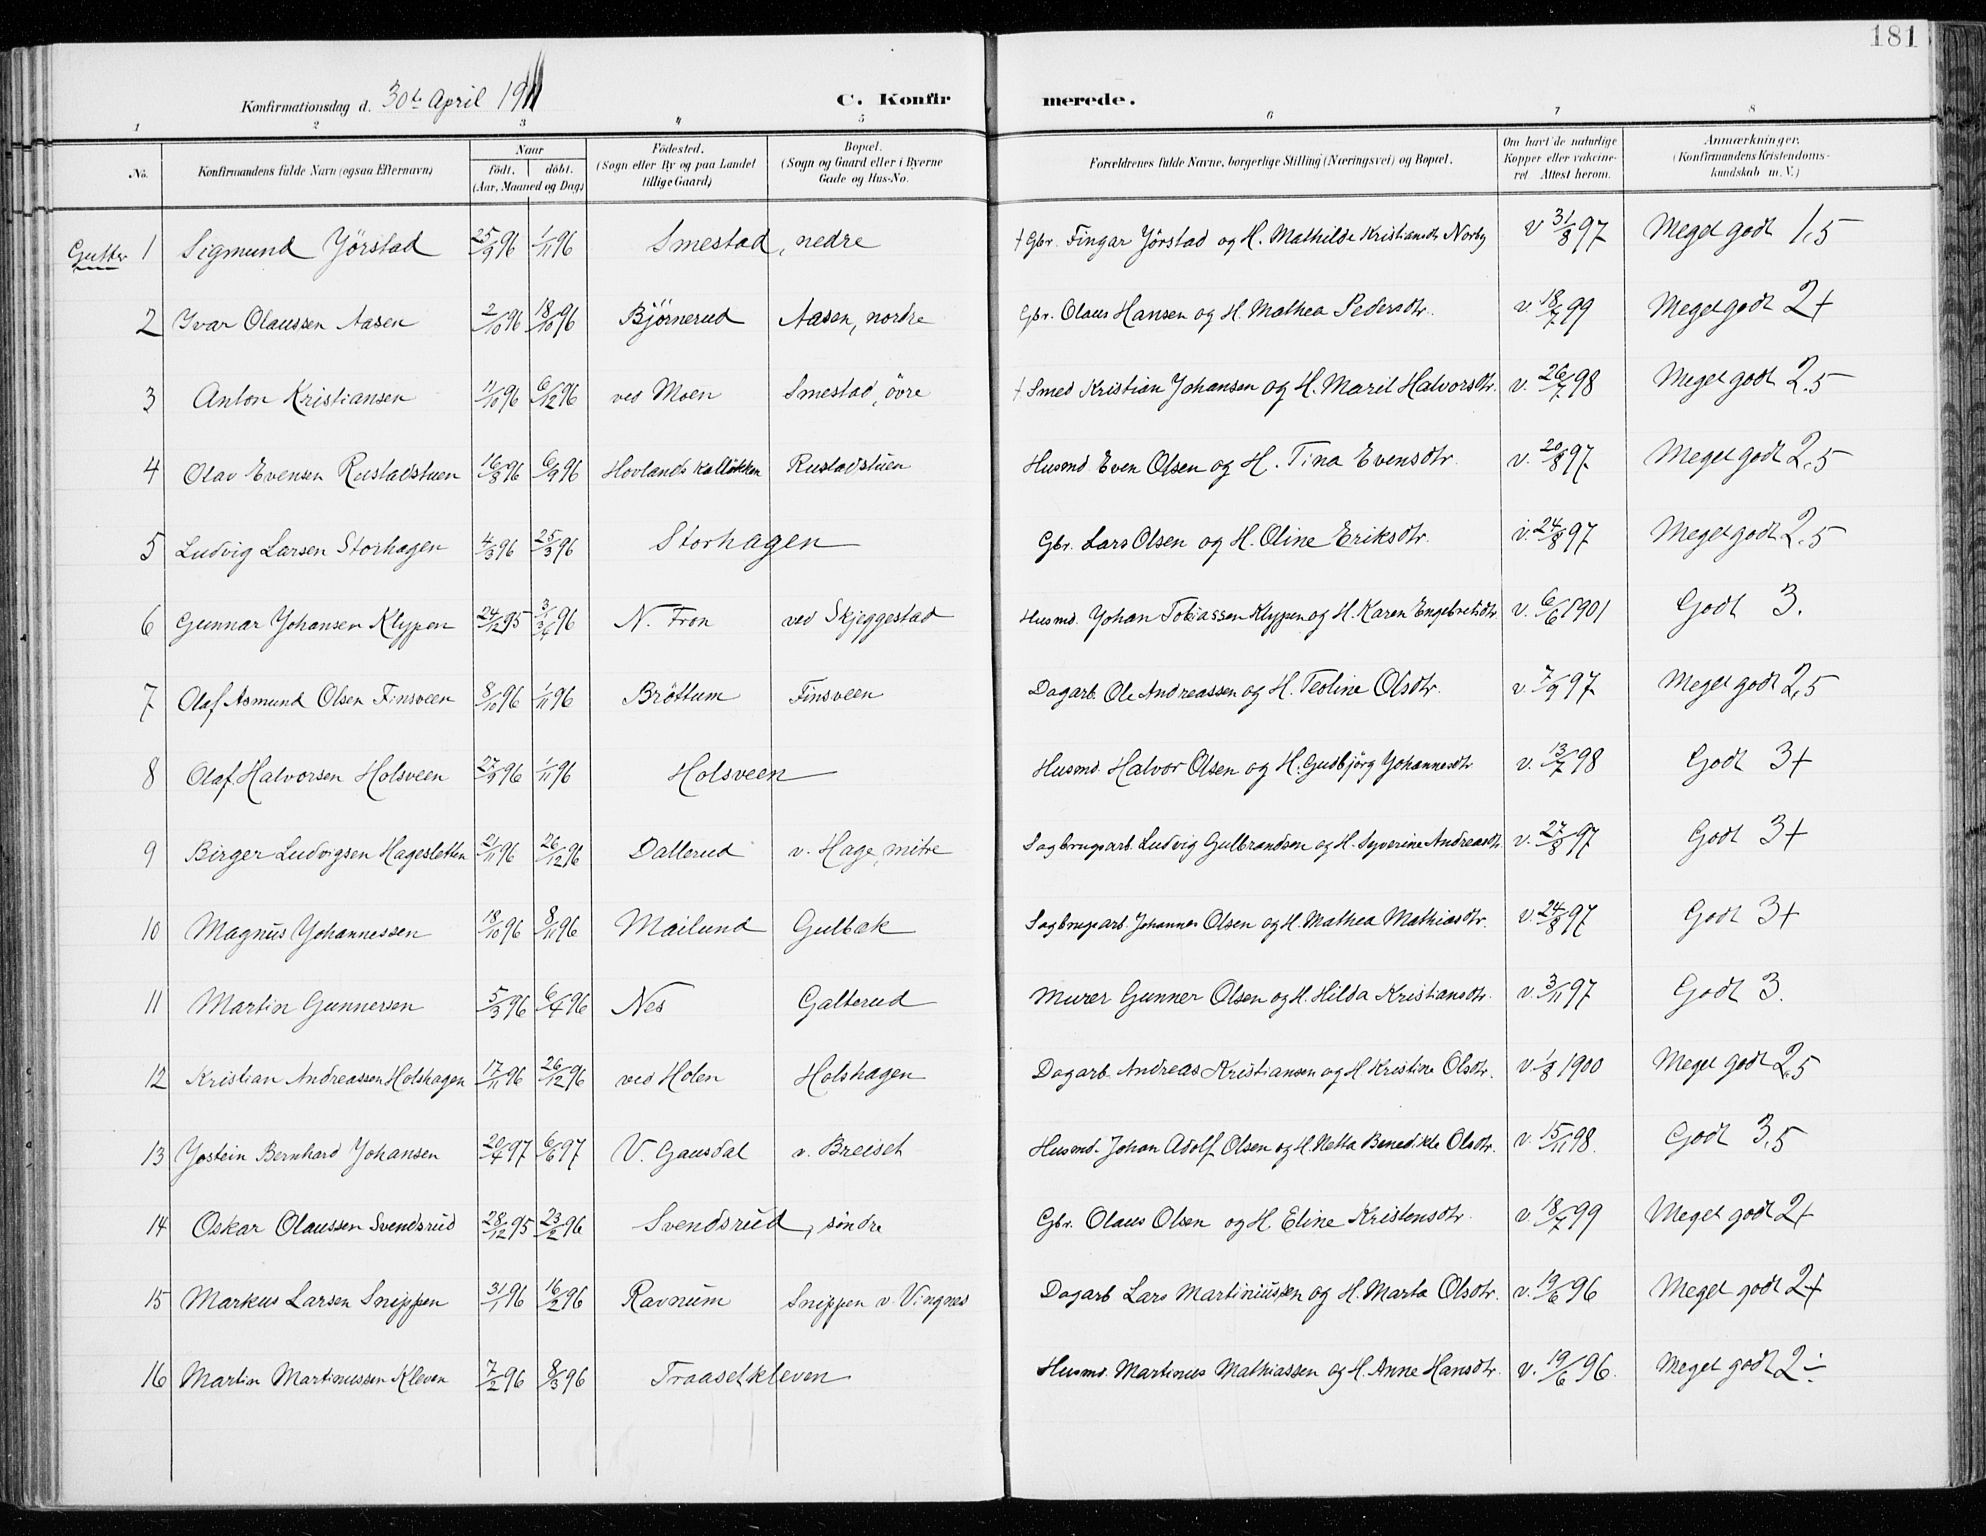 181
Konfirmationsdag d. 30te April 1911
C. Konfirmerede.
1 2 3 4 5 6 7 8
No. Konfirmandens fulde Navn (ogsaa Efternavn) Naar født. døbt. (Aar, Maaned og Dag) Fødested. (Sogn eller By og paa Landet tillige Gaard) Bopæl. (Sogn og Gaard eller i Byerne Gade og Hus-No. Forældrenes fulde Navne, borgerlige Stilling (Næringsvei) og Bopæl. Om havt de naturlige Kopper eller vaccineret Attest herom. Anmærkninger. (Konfirmandens Kristendomskundskab m. V.)
Gutter 1 Sigmund Jörstad 25/9 96 1/11 96 Smestad, nedre † Gbr. Fingar Jörstad og H. Mathilde Kristiansdtr Norby v 31/8 97 Meget godt 1,5
2 Ivar Olaussen Aasen 2/10 96 18/10 96 Björnerud Aasen, nordre Gbr. Olaus Hansen og H. Mathea Pedersdtr. v. 18/7 99 Meget godt 2+
3 Anton Kristiansen 11/10 96 6/12 96 ved Moen Smestad, övre † Smed Kristian Johansen og H. Marit Halvorsdtr. v. 26/7 98 Meget godt 2,5
4 Olav Evensen Rustadstuen 16/8 96 6/9 96 Hovlandskallökken Rustadstuen Husmd Even Olsen og H. Tina Evensdtr. v. 20/8 97 Meget godt 2,5
5 Ludvig Larsen Storhagen 4/3 96 25/3 96 Storhagen Gbr. Lars Olsen og H. Oline Eriksdtr. v. 24/8 97 Meget godt 2,5
6 Gunnar Johansen Klypen 24/12 95 96 N. Fron ved Skjeggestad Husmd. Johan Tobiassen Klypen og H. Karen Engebretsdtr v. 6/6 1901 Godt 3.
7 Olaf Asmund Olsen Finsveen 8/10 96 1/11 96 Bröttum Finsveen Dagarb. Ole Andreassen og H. Teoline Olsdtr. v. 7/9 97 Meget godt 2,5
8 Olaf Halvorsen Holsveen 27/9 96 1/11 96 Holsveen Husmd. Halvor Olsen og H. Gudbjörg Johannesdtr v. 13/7 98 Godt 3+
9 Birger Ludvigsen Hagesletten 2/11 96 26/12 96 Dallerud v. Hage, mitre Sagbrugsarb. Ludvig Gulbrandsen og H. Syverine Andreasdtr. v. 27/8 97 Godt 3+
10 Magnus Johannessen 18/10 96 8/11 96 Mailund Gulbak Sagbrugsarb. Johannes Olsen og H. Mathea Mathiasdtr. v. 24/8 97 Godt 3+
11 Martin Gunnersen 5/3 96 6/4 96 Nes Galterud Murer Gunner Olsen og H. Hilda Kristiansdtr. v. 3/11 97 Godt 3.
12 Kristian Andreassen Holshagen 17/11 96 26/12 96 ved Holen Holshagen Dagarb. Andreas Kristiansen og H Kristine Olsdtr. v. 1/8 1900 Meget godt 2,5
13 Jostein Bernhard Johansen 20/4 97 6/6 97 V. Gausdal v. Breiset Husmd. Johan Adolf Olsen og H. Netta Benedikte Olsdtr. v. 15/11 98. Godt 3,5
14 Oskar Olaussen Svendsrud 28/12 95 23/2 96 Svendsrud, söndre Gbr. Olaus Olsen og H. Eline Kristensdtr. v. 18/7 99 Meget godt 2+
15 Markus Larsen Snippen 31/1 96 16/2 96 Ravnum Snippen v. Vingnes Dagarb Lars Martiniussen og H. Marta Olsdtr. v. 19/6 96 Meget godt 2+
16 Martin Martinussen Kleven 7/2 96 8/3 96 Traasetkleven Husmd. Martinus Mathiassen og H. Anne Hansdtr. v. 19/6 96. Meget godt 2÷